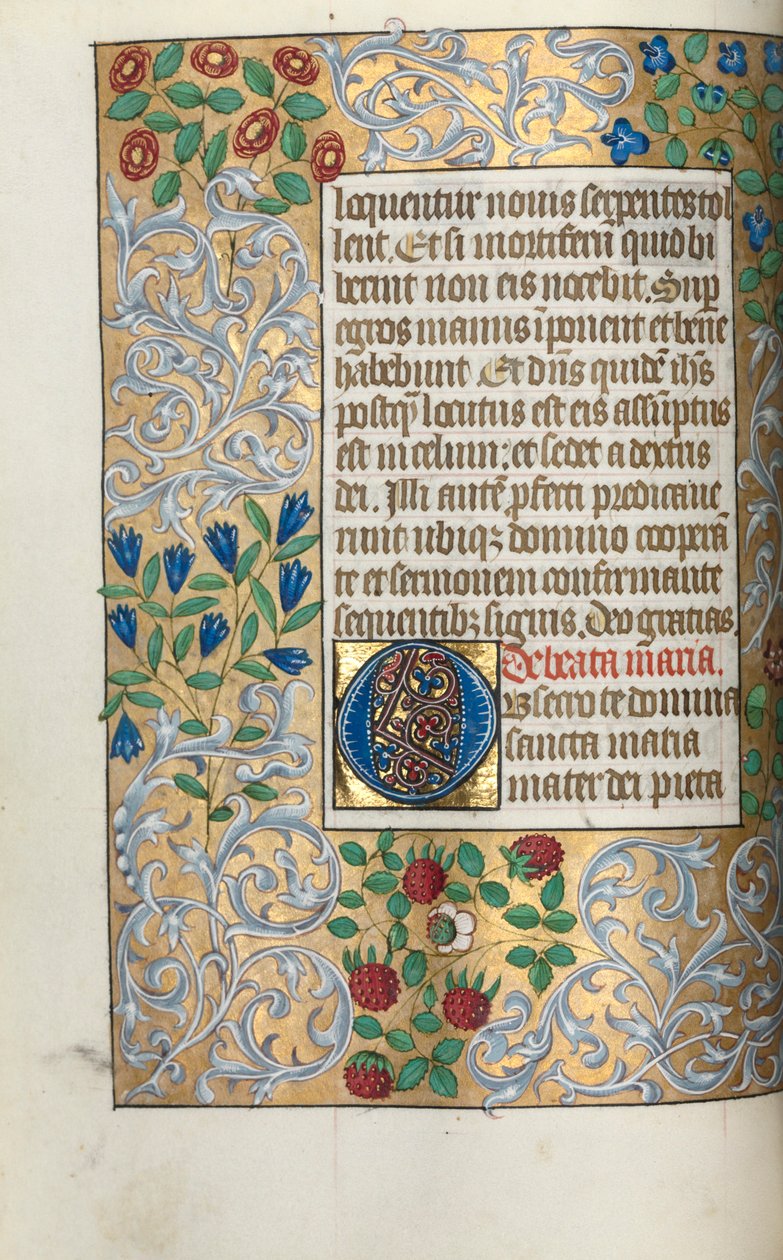 loquentur nouis serpentes tol
lent. Et si mortiferū quid bi
berint non eis nocebit. Sup
egros manus īponent et bene
habebunt Et dn̄s quidē ih̄s
postq̄ locutus est eis assūptus
est in celum: et sedet a dextris
dei. Illi autē pfecti predicaue
runt ubiqꝫ domino cooperā
te et sermonem confirmante
sequentibꝫ signis. Deo gratias.
De beata maria.
Obsecro te domina
sancta maria
mater dei pieta